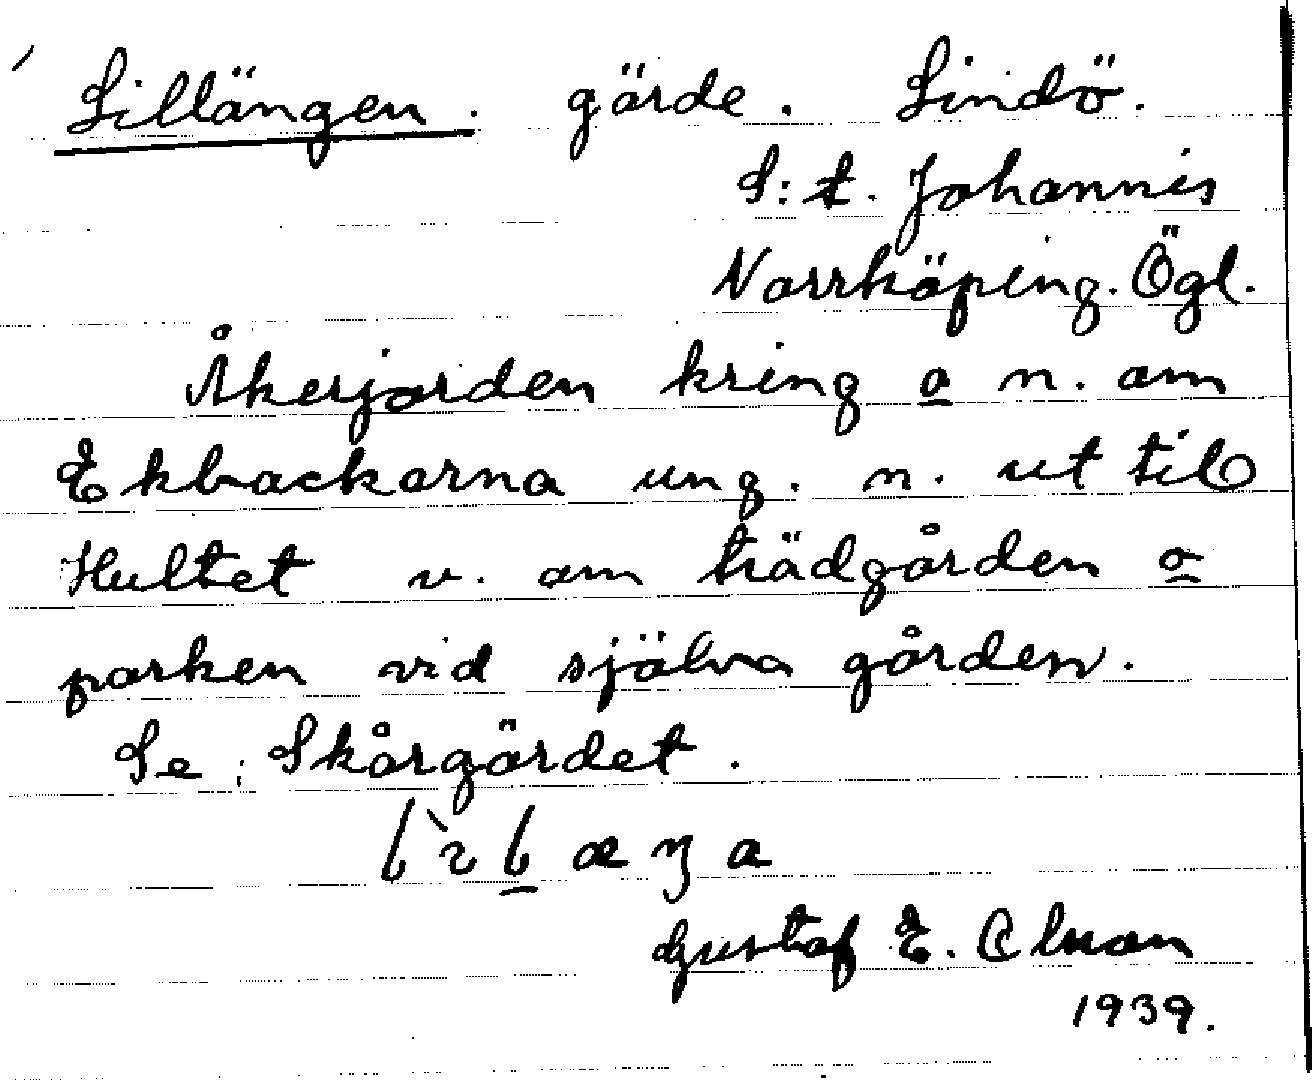 Lillängen. gärde. Lindö.
S:t. Johannis
Norrköping. Ögl.
Åkerjorden kring o n. om
Ekbackarna ung. n. ut till
Hultet v. om trädgården o
parken vid själva gården.
Se: Skårgärdet.
Gustaf E.
1939.